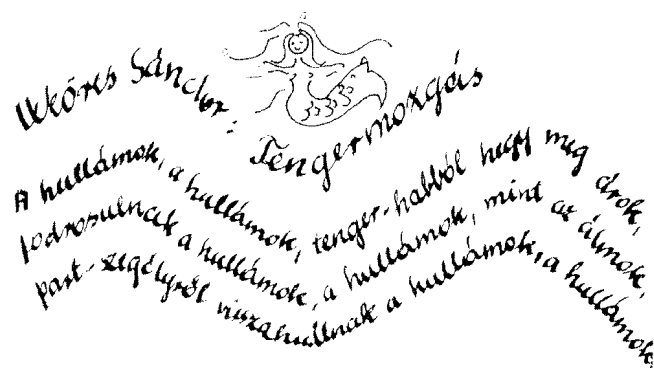 Weöres Sándor: Tengermozgás
A hullámok, a hullámok, tenger-habból hegy meg árok,
fodrosulnak a hullámok, a hullámok, mint az álmok,
part-szegélyről visszahullnak a hullámok, a hullámok,